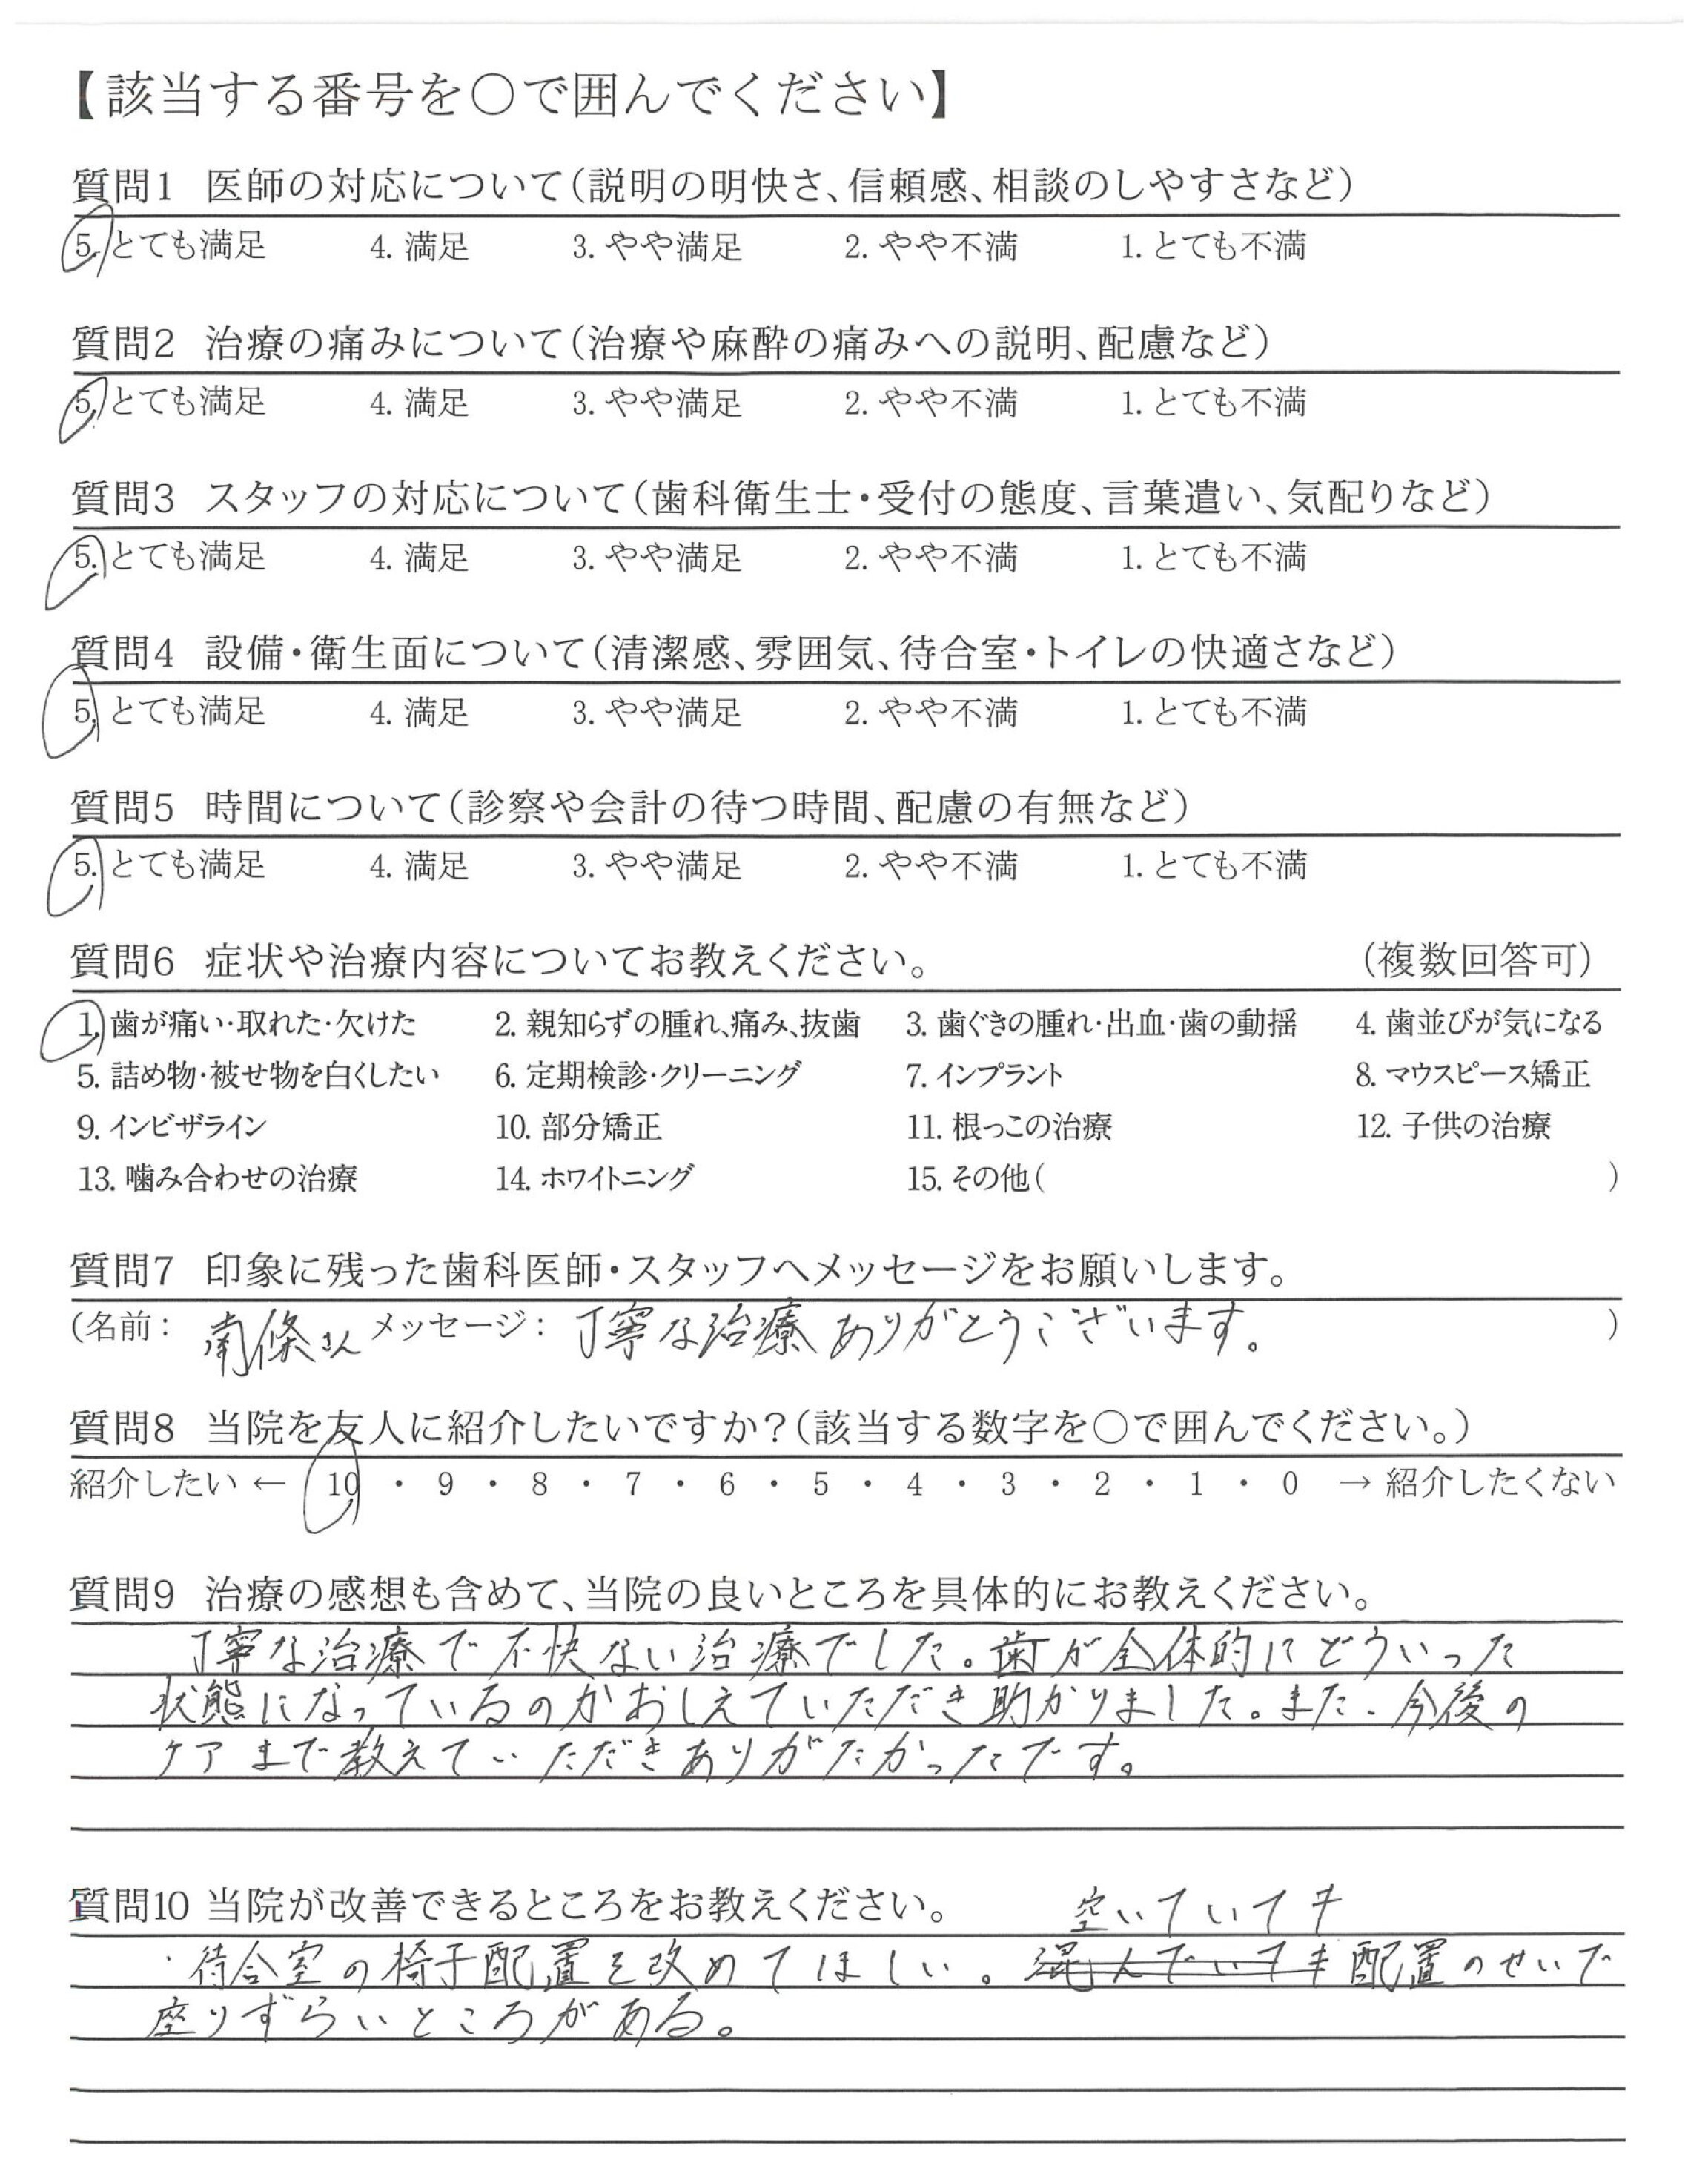 【該当する番号を〇で囲んでください】
質問1 医師の対応について(説明の明快さ、信頼感、相談のしやすさなど)
5. とても満足 4. 満足 3. やや満足 2. やや不満 1. とても不満
質問2 治療の痛みについて(治療や麻酔の痛みへの説明、配慮など)
5. とても満足 4. 満足 3. やや満足 2. やや不満 1. とても不満
質問3 スタッフの対応について(歯科衛生士・受付の態度、言葉遣い、気配りなど)
5. とても満足 4. 満足 3. やや満足 2. やや不満 1. とても不満
質問4 設備・衛生面について(清潔感、雰囲気、待合室・トイレの快適さなど)
5. とても満足 4. 満足 3. やや満足 2. やや不満 1. とても不満
質問5 時間について(診察や会計の待つ時間、配慮の有無など)
5. とても満足 4. 満足 3. やや満足 2. やや不満 1. とても不満
質問6 症状や治療内容についてお教えください。 (複数回答可)
1. 歯が痛い・取れた・欠けた 2. 親知らずの腫れ、痛み、抜歯 3. 歯ぐきの腫れ・出血・歯の動揺 4. 歯並びが気になる
5. 詰め物・被せ物を白くしたい 6. 定期検診・クリーニング 7. インプラント 8. マウスピース矯正
9. インビザライン 10. 部分矯正 11. 根っこの治療 12. 子供の治療
13. 噛み合わせの治療 14. ホワイトニング 15. その他( )
質問7 印象に残った歯科医師・スタッフへメッセージをお願いします。
(名前: 南條さん メッセージ: 丁寧な治療ありがとうございます。 )
質問8 当院を友人に紹介したいですか?(該当する数字を〇で囲んでください。)
紹介したい ← 10 ・ 9 ・ 8 ・ 7 ・ 6 ・ 5 ・ 4 ・ 3 ・ 2 ・ 1 ・ 0 → 紹介したくない
質問9 治療の感想も含めて、当院の良いところを具体的にお教えください。
丁寧な治療で不快ない治療でした。歯が全体的にどういった
状態になっているのかおしえていただき助かりました。また、今後の
ケアまで教えていただきありがたかったです。
質問10 当院が改善できるところをお教えください。 空いていても
・待合室の椅子配置を改めてほしい。混んでいても配置のせいで
座りずらいところがある。